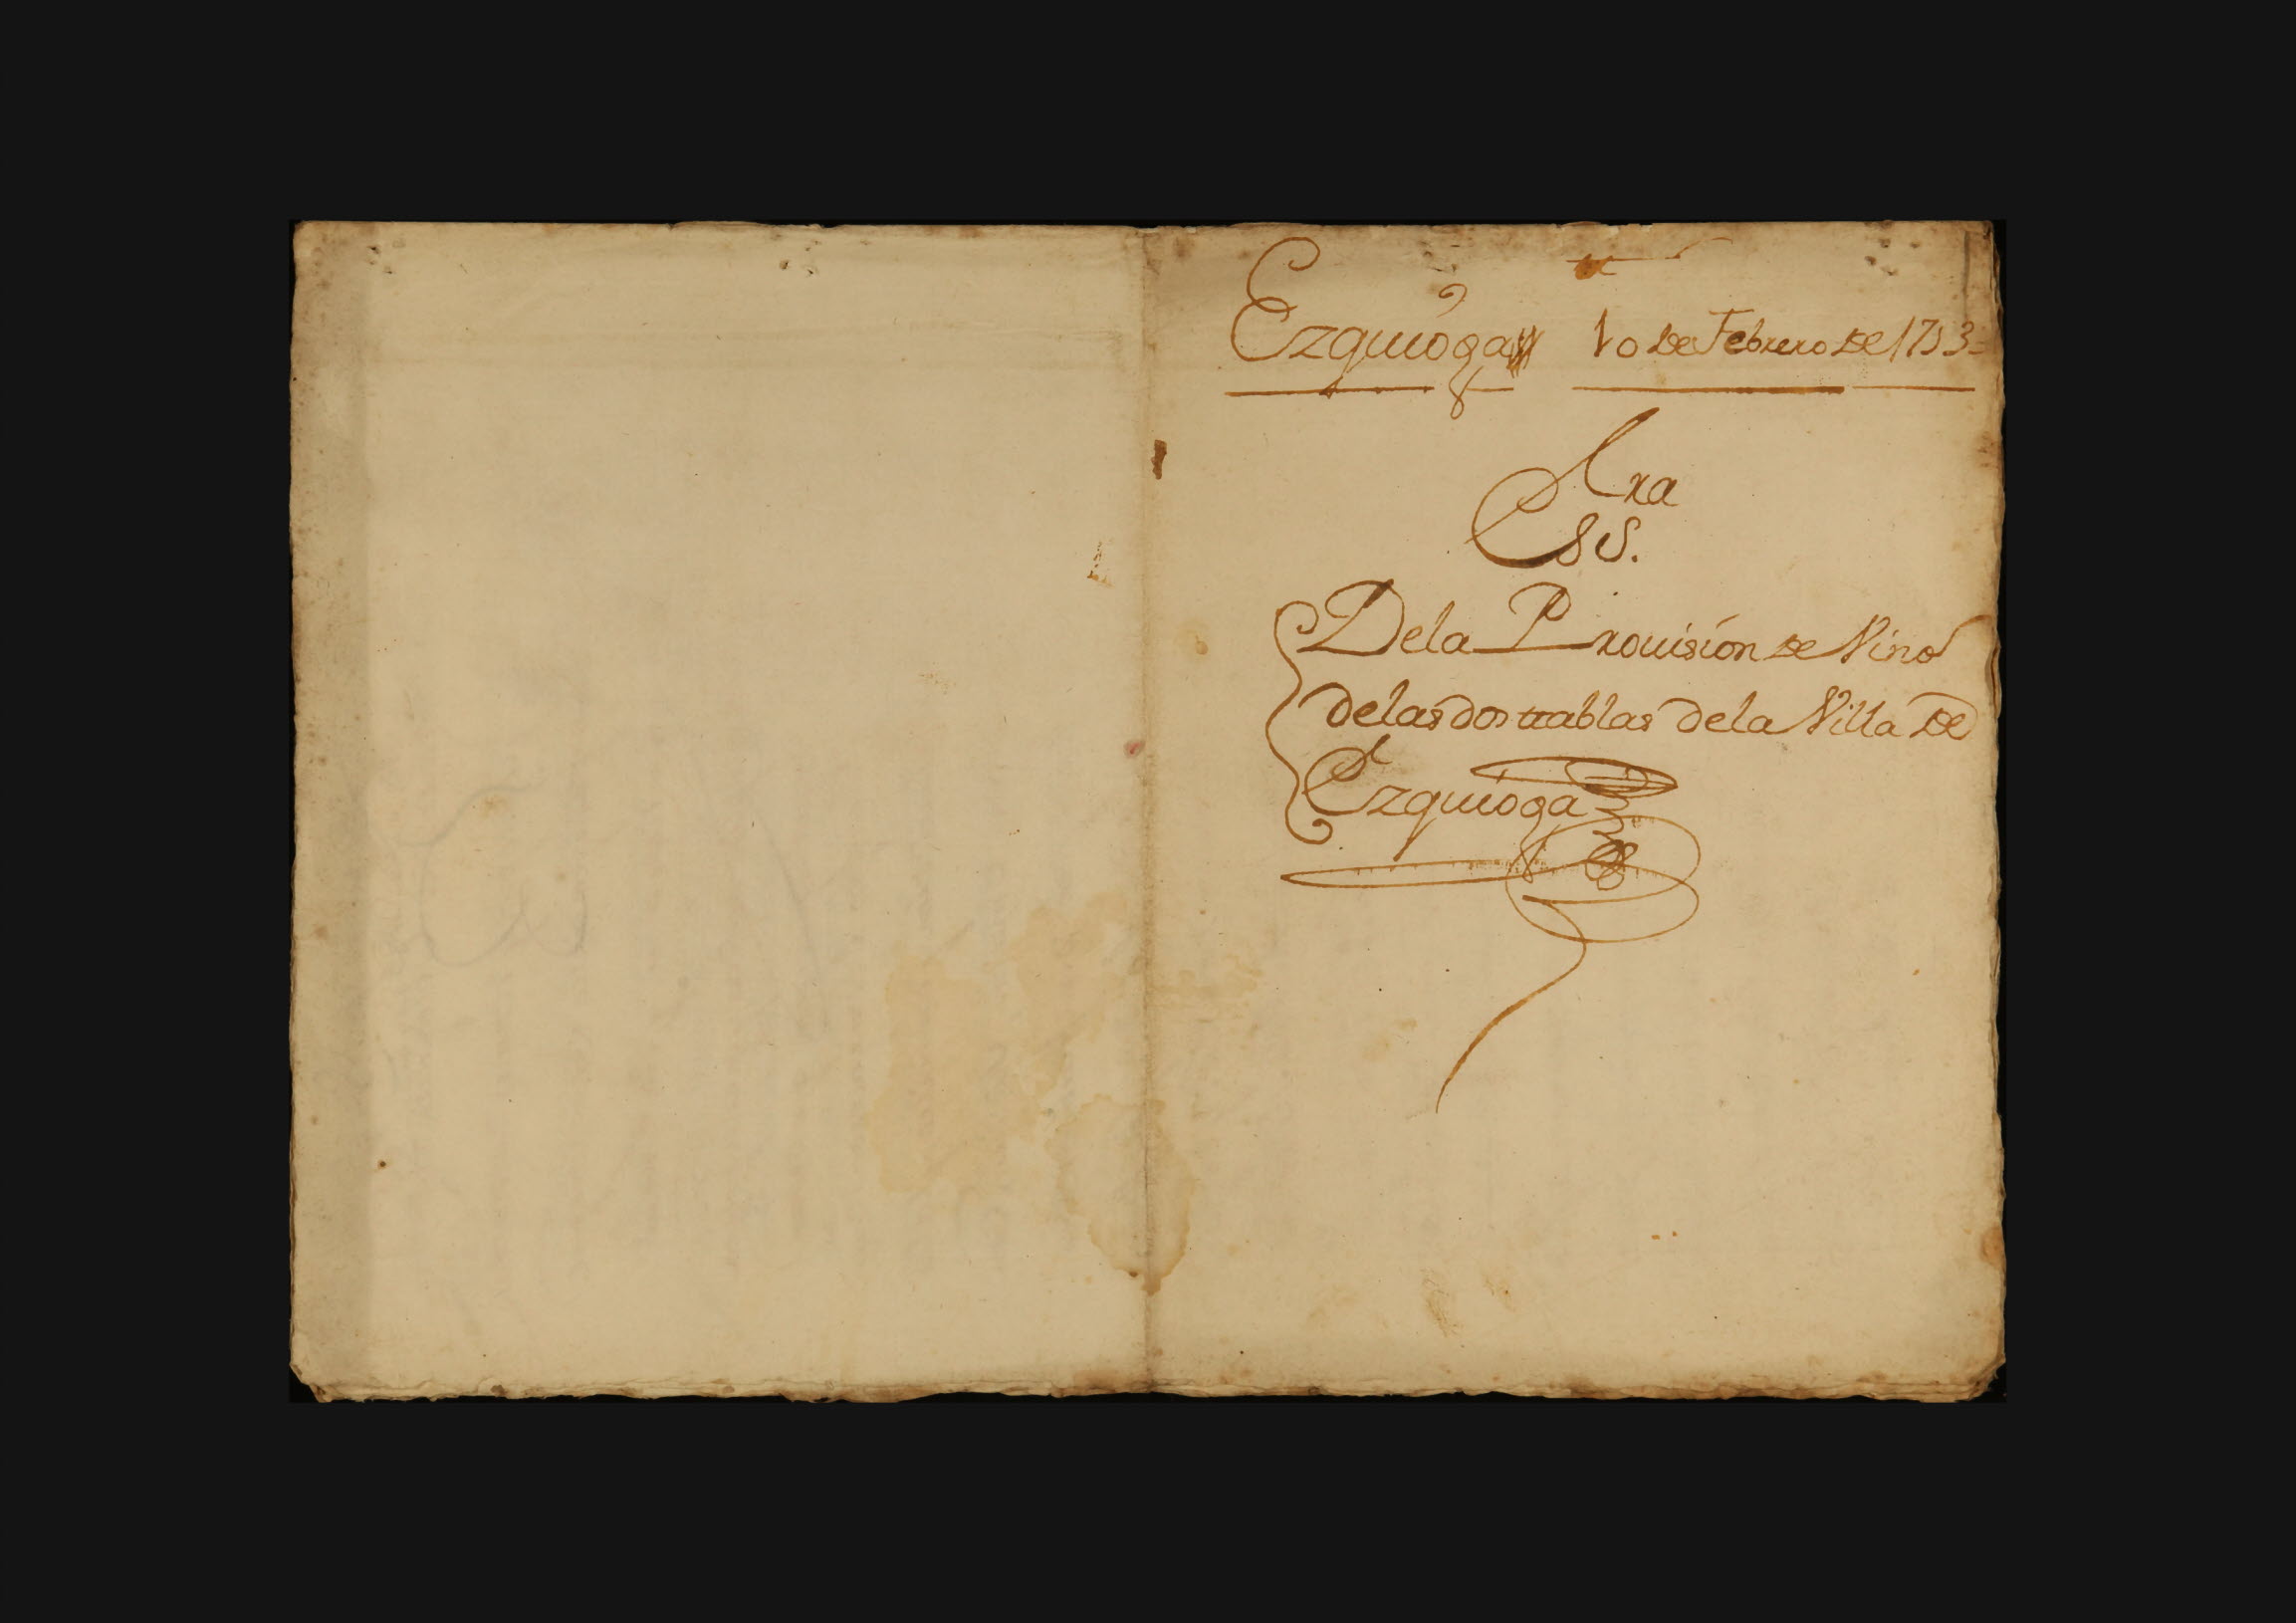 Ezquioga 10 de Febrero de 1753
Cra
Ess.
Dela Prouision de Vino
delas dos ttablas dela Villa de
Ezquioga